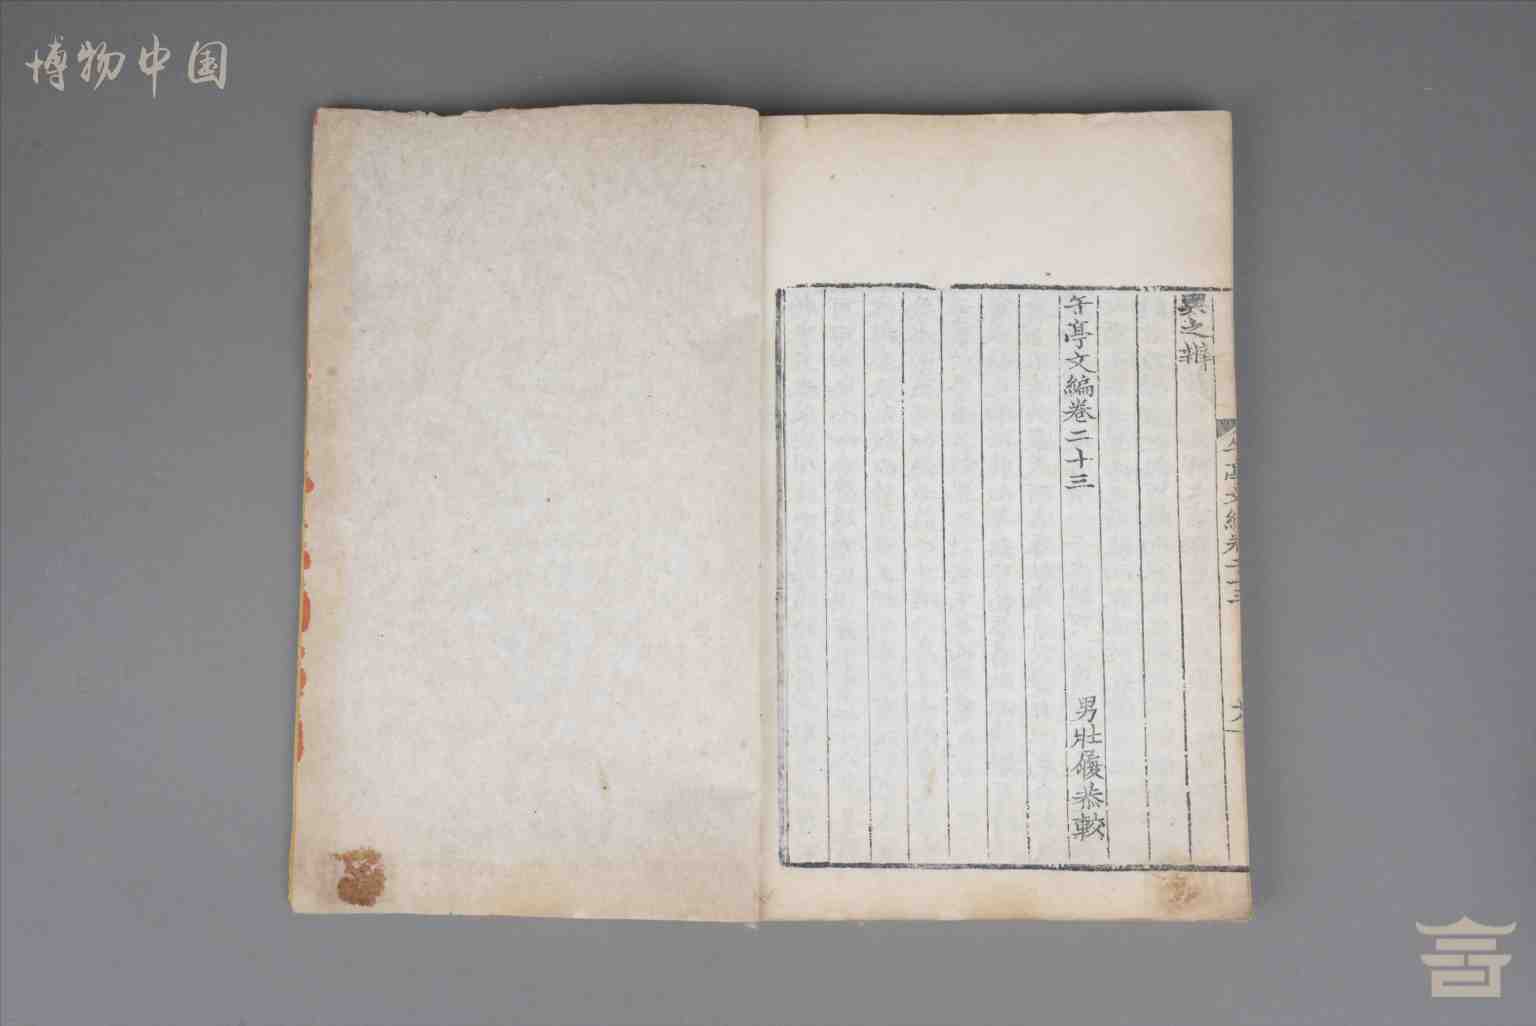 博物中国
異之辨
午亭文編卷二十三
男壯履恭較
午亭文編卷二十三